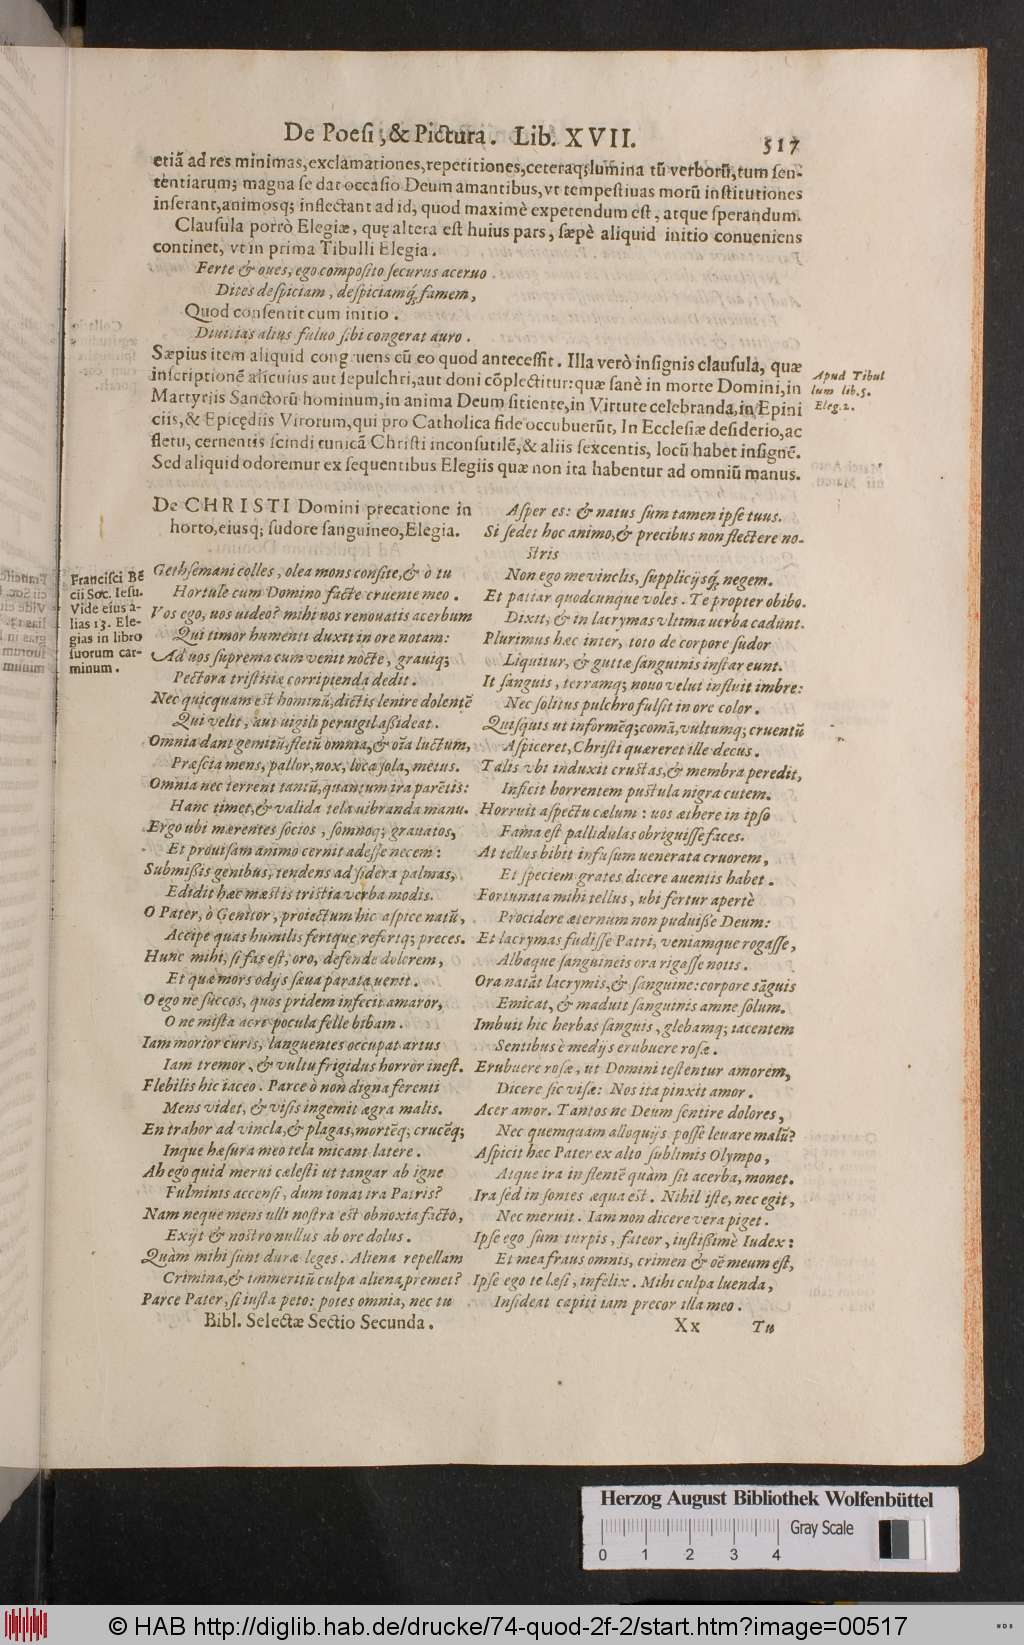 De Poesi, & Pictura. Lib. XVII. 517
etiã ad res minimas, exclamationes, repetitiones, ceteraq; lumina tũ verborũ, tum sen-
tentiarum; magna se dat occasio Deum amantibus, vt tempestiuas morũ institutiones
inserant, animosq; inflectant ad id, quod maximè expetendum est, atque sperandum.
Clausula porrò Elegiæ, quę altera est huius pars, sæpè aliquid initio conueniens
continet, vt in prima Tibulli Elegia.
Ferte & oues, ego composito securus aceruo.
Dites despiciam, despiciamq́; famem,
Quod consentit cum initio.
Diuitias alius fuluo sibi congerat auro.
Sæpius item aliquid congruens cũ eo quod antecessit. Illa verò insignis clausula, quæ
inscriptionẽ alicuius aut sepulchri, aut doni cõplectitur: quæ sanè in morte Domini, in
Martyriis Sanctorũ hominum, in anima Deum sitiente, in Virtute celebranda, in Epini
ciis, & Epicędiis Virorum, qui pro Catholica fide occubuerũt, In Ecclesiæ desiderio, ac
fletu, cernentis scindi tunicã Christi inconsutilẽ, & aliis sexcentis, locũ habet insignẽ.
Sed aliquid odoremur ex sequentibus Elegiis quæ non ita habentur ad omniũ manus.
Apud Tibul
lum lib. 5.
Eleg. 2.
De CHRISTI Domini precatione in
horto, eiusq; sudore sanguineo, Elegia.
Francisci Bẽ
cii Soc. Iesu.
Vide eius a-
lias 13. Ele-
gias in libro
suorum car-
minum.
Gethsemani colles, olea mons consite, & ò tu
Hortule cum Domino facte cruente meo.
Vos ego, uos uideo? mihi uos renouatis acerbum
Qui timor humenti duxit in ore notam:
Ad uos suprema cum venit nocte, grauiq;
Pectora tristitiæ corripienda dedit.
Nec quicquam est hominũ, dictis lenire dolentẽ
Qui velit, aut uigili peruigil aßideat.
Omnia dant gemitũ, fletũ omnia, & oĩa luctum,
Præscia mens, pallor, nox, loca sola, metus.
Omnia nec terrent tantũ, quantum ira parẽtis:
Hanc timet, & valida tela uibranda manu.
Ergo ubi mærentes socios, somnoq; grauatos,
Et prouisam animo cernit adesse necem:
Submißis genibus, tendens ad sidera palmas,
Edidit hæc mæstis tristia verba modis.
O Pater, ò Genitor, proiectum hic aspice natũ,
Accipe quas humilis fertque refertq; preces.
Hunc mihi, si fas est, oro, defende dolorem,
Et quæ mors odijs sæua parata uenit.
O ego ne succos, quos pridem infecit amaror,
O ne mista acri pocula felle bibam.
Iam morior curis, languentes occupat artus
Iam tremor, & vultu frigidus horror inest.
Flebilis hic iaceo. Parce ò non digna ferenti
Mens videt, & visis ingemit ægra malis.
En trahor ad vincla, & plagas, mortẽq; crucẽq;
Inque hæsura meo tela micant latere.
Ah ego quid merui cælesti ut tangar ab igne
Fulminis accensi, dum tonat ira Patris?
Nam neque mens ulli nostra est obnoxia facto,
Exijt & nostro nullus ab ore dolus.
Quàm mihi sunt duræ leges. Aliena repellam
Crimina, & immeritũ culpa aliena premet?
Parce Pater, si iusta peto: potes omnia, nec tu
Asper es: & natus sum tamen ipse tuus.
Si sedet hoc animo, & precibus non flectere no-
stris
Non ego me vinclis, supplicijsq́; negem.
Et patiar quodcunque voles. Te propter obibo.
Dixit, & in lacrymas vltima uerba cadunt.
Plurimus hæc inter, toto de corpore sudor
Liquitur, & guttæ sanguinis instar eunt.
It sanguis, terramq; nouo velut influit imbre:
Nec solitus pulchro fulsit in ore color.
Quisquis ut informẽq; comã, vultumq; cruentũ
Aspiceret, Christi quæreret ille decus.
Talis vbi induxit crustas, & membra peredit,
Inficit horrentem pustula nigra cutem.
Horruit aspectu cælum: uos æthere in ipso
Fama est pallidulas obriguisse faces.
At tellus bibit infusum uenerata cruorem,
Et speciem grates dicere auentis habet.
Fortunata mihi tellus, ubi fertur apertè
Procidere æternum non puduiße Deum:
Et lacrymas fudisse Patri, veniamque rogasse,
Albaque sanguineis ora rigasse notis.
Ora natãt lacrymis, & sanguine: corpore sãguis
Emicat, & maduit sanguinis amne solum.
Imbuit hic herbas sanguis, glebamq; iacentem
Sentibus è medijs erubuere rosæ.
Erubuere rosæ, ut Domini testentur amorem,
Dicere sic visæ: Nos ita pinxit amor.
Acer amor. Tantos ne Deum sentire dolores,
Nec quemquam alloquijs posse leuare malũ?
Aspicit hæc Pater ex alto sublimis Olympo,
Atque ira in flentẽ quàm sit acerba, monet.
Ira sed in sontes æqua est. Nihil iste, nec egit,
Nec meruit. Iam non dicere vera piget.
Ipse ego sum turpis, fateor, iustißimè Iudex:
Et mea fraus omnis, crimen & oẽ meum est,
Ipse ego te læsi, infelix. Mihi culpa luenda,
Insideat capiti iam precor illa meo.
Bibl. Selectæ Sectio Secunda. Xx Tu
Herzog August Bibliothek Wolfenbüttel
Gray Scale
0 1 2 3 4
© HAB http://diglib.hab.de/drucke/74-quod-2f-2/start.htm?image=00517